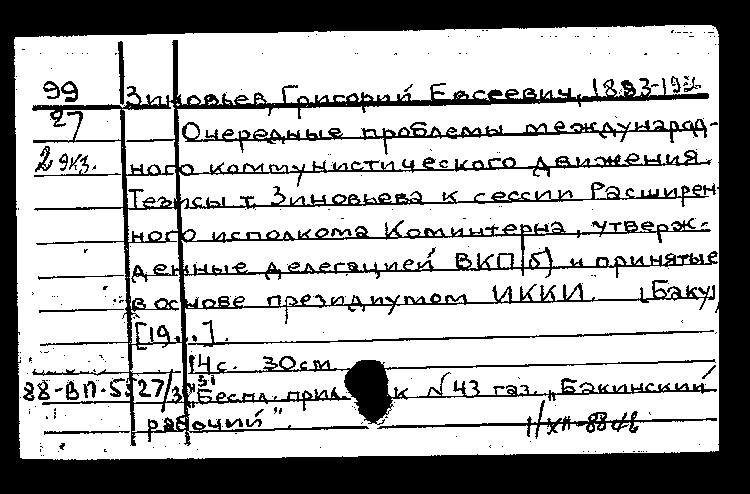 99 Зиновьев, Григорий Евсеевич, 1883-193
27 Очередные проблемы международ-
2 экз. ного коммунистического движения.
Тезисы т. Зиновьева к сессии Расширен
ного исполкома Коминтерна, утверж-
денные делегацией ВКП(б) и принятые
в основе президиутом ИККИ. [Баку,
[19...].
14 с. 30 см.
88-ВП-5527/3 "Беспл. прил. к №43 газ. „Бакинский
рабочий".